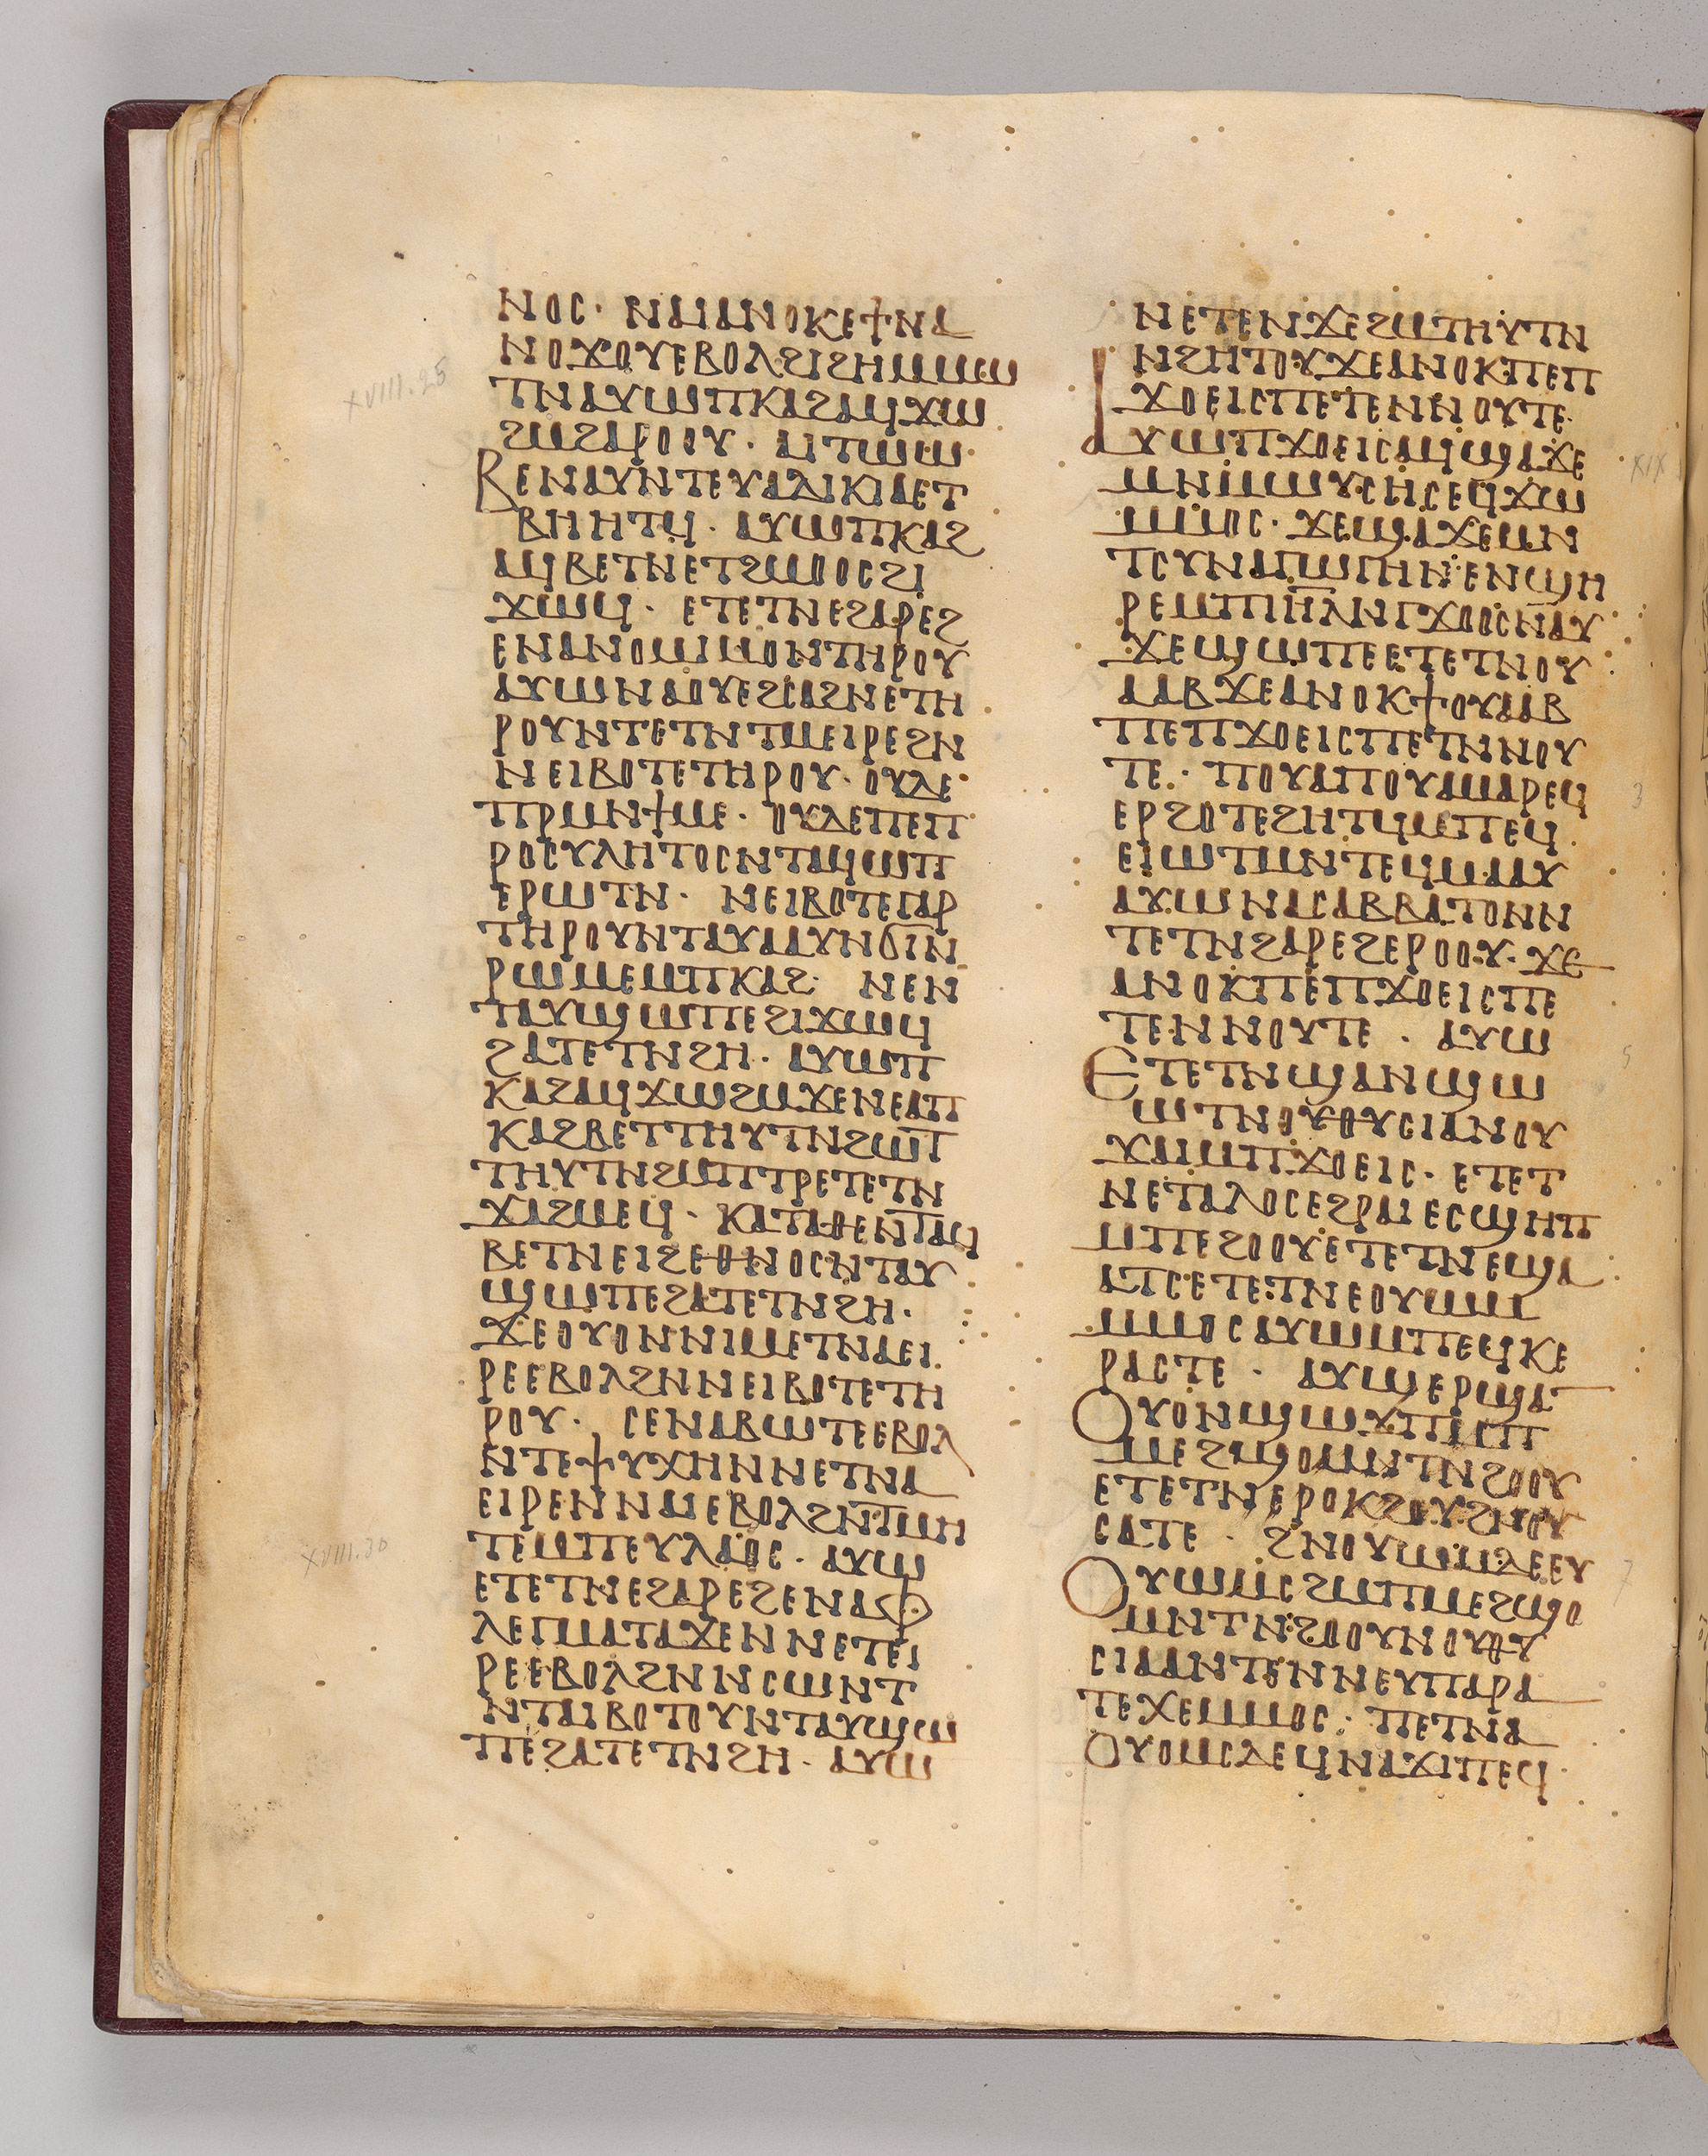 ⲛⲟⲥ· ⲛⲁⲓⲁⲛⲟⲕⲉϯⲛⲁ
ⲛⲟϫⲟⲩⲉⲃⲟⲗϩⲓϩⲏⲙⲙⲱ
ⲧⲛⲁⲩⲱⲡⲕⲁϩⲁϥϫⲱ
ϩⲙϩⲁⲣⲟⲟⲩ· ⲁⲓⲧⲱⲱ
ⲃⲉⲛⲁⲩⲛⲧⲉⲩⲁⲇⲓⲕⲓⲁⲉⲧ
ⲃⲏⲏⲧϥ· ⲁⲩⲱⲡⲕⲁϩ
ⲁϥⲃⲉⲧⲛⲉⲧϩⲙⲟⲟⲥϩⲓ
ϫⲱϥ· ⲉⲧⲉⲧⲛⲉϩⲁⲣⲉϩ
ⲉⲛⲁⲛⲟⲙⲓⲙⲟⲛⲧⲏⲣⲟⲩ
ⲁⲩⲱⲛⲁⲟⲩⲉϩⲥⲁϩⲛⲉⲧⲏ
ⲣⲟⲩⲛⲧⲉⲧⲛⲧⲙⲉⲓⲣⲉϩⲛ
ⲛⲉⲓⲃⲟⲧⲉⲧⲏⲣⲟⲩ· ⲟⲩⲇⲉ
ⲡⲣⲙⲛϯⲙⲉ· ⲟⲩⲇⲉⲡⲉⲡ
ⲣⲟⲥⲩⲗⲏⲧⲟⲥⲛⲧⲁϥⲱⲡ
ⲉⲣⲱⲧⲛ· ⲛⲉⲓⲃⲟⲧⲉⲅⲁⲣ
ⲧⲏⲣⲟⲩⲛⲧⲁⲩⲁⲁⲩⲛϭⲓⲛ
ⲣⲱⲙⲉⲙⲡⲕⲁϩ· ⲛⲉⲛ
ⲧⲁⲩϣⲱⲡⲉϩⲓϫⲱϥ
ϩⲁⲧⲉⲧⲛϩⲏ· ⲁⲩⲱⲡ
ⲕⲁϩⲁϥϫⲱϩⲙϫⲉⲛⲉⲁⲡ
ⲕⲁϩⲃⲉⲧⲧⲏⲩⲧⲛϩⲱⲧ
ⲧⲏⲩⲧⲛϩⲙⲡⲧⲣⲉⲧⲉⲧⲛ
ϫⲁϩⲙⲉϥ· ⲕⲁⲧⲁⲑⲉⲛⲧⲁϥ
ⲃⲉⲧⲛⲉⲓϩⲉⲑⲛⲟⲥⲛⲧⲁⲩ
ϣⲱⲡⲉϩⲁⲧⲉⲧⲛϩⲏ·
ϫⲉⲟⲩⲟⲛⲛⲓⲙⲉⲧⲛⲁⲉⲓ
ⲣⲉⲉⲃⲟⲗϩⲛⲛⲉⲓⲃⲟⲧⲉⲧⲏ
ⲣⲟⲩ· ⲥⲉⲛⲁⲃⲱⲧⲉⲉⲃⲟⲗ
ⲛⲧⲉⲯⲩⲭⲏⲛⲛⲉⲧⲛⲁ
ⲉⲓⲣⲉⲛⲛⲁⲓⲉⲃⲟⲗϩⲛⲧⲙⲏ
ⲧⲉⲙⲡⲉⲩⲗⲁⲟⲥ· ⲁⲩⲱ
ⲉⲧⲉⲧⲛⲉϩⲁⲣⲉϩⲉⲛⲁⲫ
ⲗⲉⲅⲙⲁⲧⲁϫⲉⲛⲛⲉⲧⲉⲓ
ⲣⲉⲉⲃⲟⲗϩⲛⲛⲥⲱⲛⲧ
ⲛⲧⲁⲓⲃⲟⲧⲟⲩⲛⲧⲁⲩϣⲱ
ⲡⲉϩⲁⲧⲉⲧⲛϩⲏ· ⲁⲩⲱ
ⲛⲉⲧⲉⲛϫⲉϩⲙⲧⲏⲩⲧⲛ
ⲛϩⲏⲧⲟⲩϫⲉⲁⲛⲟⲕⲡⲉⲡ
ϫⲟⲉⲓⲥⲡⲉⲧⲉⲛⲛⲟⲩⲧⲉ·
ⲁⲩⲱⲡϫⲟⲉⲓⲥⲁϥϣⲁϫⲉ
ⲙⲛⲙⲱⲩⲥⲏⲥⲉϥϫⲱ
ⲙⲙⲟⲥ· ϫⲉϣⲁϫⲉⲙⲛ
ⲧⲥⲩⲛⲁⲅⲱⲅⲏⲛⲉⲛϣⲏ
ⲣⲉⲙⲡⲓⲏⲗⲛⲅϫⲟⲟⲥⲛⲁⲩ
ϫⲉϣⲱⲡⲉⲉⲧⲉⲧⲛⲟⲩ
ⲁⲁⲃϫⲉⲁⲛⲟⲕϯⲟⲩⲁⲁⲃ
ⲡⲉⲡϫⲟⲉⲓⲥⲡⲉⲧⲛⲛⲟⲩ
ⲧⲉ· ⲡⲟⲩⲁⲡⲟⲩⲁⲙⲁⲣⲉϥ
ⲉⲣϩⲟⲧⲉϩⲏⲧϥⲙⲡⲉϥ
ⲉⲓⲱⲧⲙⲛⲧⲉϥⲙⲁⲁⲩ
ⲁⲩⲱⲛⲁⲥⲁⲃⲃⲁⲧⲟⲛⲛ
ⲧⲉⲧⲛϩⲁⲣⲉϩⲉⲣⲟⲟⲩ· ϫⲉ
ⲁⲛⲟⲕⲡⲉⲡϫⲟⲉⲓⲥⲡⲉ
ⲧⲉⲛⲛⲟⲩⲧⲉ· ⲁⲩⲱ
ⲉⲧⲉⲧⲛϣⲁⲛϣⲱ
ⲱⲧⲛⲟⲩⲑⲩⲥⲓⲁⲛⲟⲩ
ϫⲁⲓⲙⲡϫⲟⲉⲓⲥ· ⲉⲧⲉⲧ
ⲛⲉⲧⲁⲗⲟⲥⲉϩⲣⲁⲓⲉⲥϣⲏⲡ
ⲙⲡⲉϩⲟⲟⲩⲉⲧⲉⲧⲛⲉϣⲁ
ⲁⲧⲥⲉⲧⲉⲧⲛⲉⲟⲩⲱⲙ
ⲙⲙⲟⲥⲁⲩⲱⲙⲡⲉϥⲕⲉ
ⲣⲁⲥⲧⲉ· ⲁⲩⲱⲉⲣϣⲁ
ⲟⲩⲟⲛϣⲱϫⲡϣⲁⲡ
ⲙⲉϩϣⲟⲙⲛⲧⲛϩⲟⲟⲩ
ⲉⲧⲉⲧⲛⲉⲣⲟⲕϩⲟⲩϩⲛⲟⲩ
ⲥⲁⲧⲉ· ϩⲛⲟⲩⲱⲙⲇⲉⲉⲩ
ⲟⲩⲱⲙⲥϩⲙⲡⲙⲉϩϣⲟ
ⲙⲛⲧⲛϩⲟⲟⲩⲛⲟⲩⲑⲩ
ⲥⲓⲁⲁⲛⲧⲉⲛⲛⲉⲩⲡⲁⲣⲁ
ⲧⲉⲭⲉⲙⲙⲟⲥ· ⲡⲉⲧⲛⲁ
ⲟⲩⲟⲙⲥⲇⲉϥⲛⲁϫⲓⲡⲉϥ
XVIII.25
XVIII.30
XIX
3
5
7